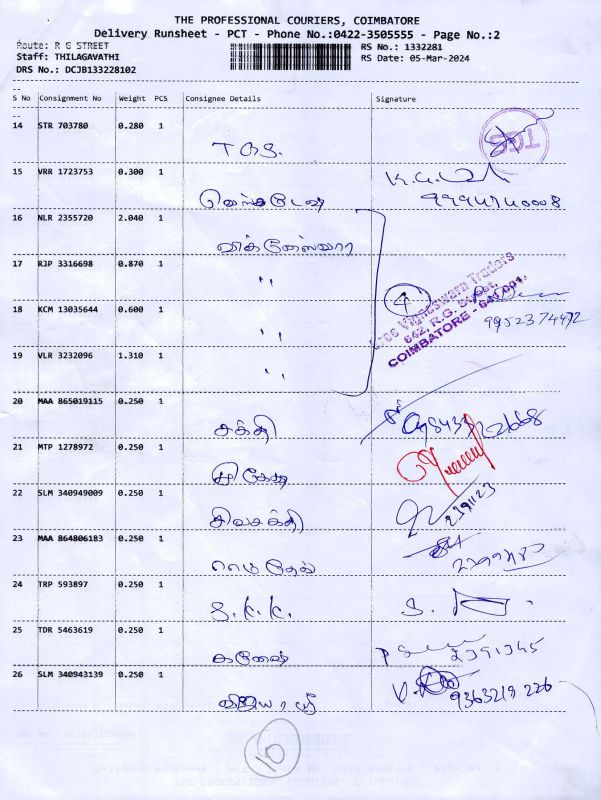 THE PROFESSIONAL COURIERS, COIMBATORE
Delivery Runsheet - PCT - Phone No.:0422-3505555 - Page No.:2
Route: R G STREET
RS No.: 1332281
Staff: THILAGAVATHI
RS Date: 05-Mar-2024
DRS No.: DCJB133228102
S No Consignment No Weight PCS Consignee Details Signature
14 STR 703780 0.280 1
T.G.S.
TGS
15 VRR 1723753 0.300 1
K.G.
9994740008
16 NLR 2355720 2.040 1
விக்னேஸ்வரா
17 RJP 3316698 0.870 1
"
4
Sree Vigneswara Traders
642, R.G. Street,
COIMBATORE - 641 001.
18 KCM 13035644 0.600 1
"
9952374472
19 VLR 3232096 1.310 1
"
20 MAA 865019115 0.250 1
சக்தி
21 MTP 1278972 0.250 1
22 SLM 340949009 0.250 1
சிவசக்தி
2391123
23 MAA 864806183 0.250 1
24 TRP 593897 0.250 1
S.K.K.
S.
25 TDR 5463619 0.250 1
கணேஷ்
2391345
26 SLM 340943139 0.250 1
விஜயா ஸ்ரீ
9363219226
10